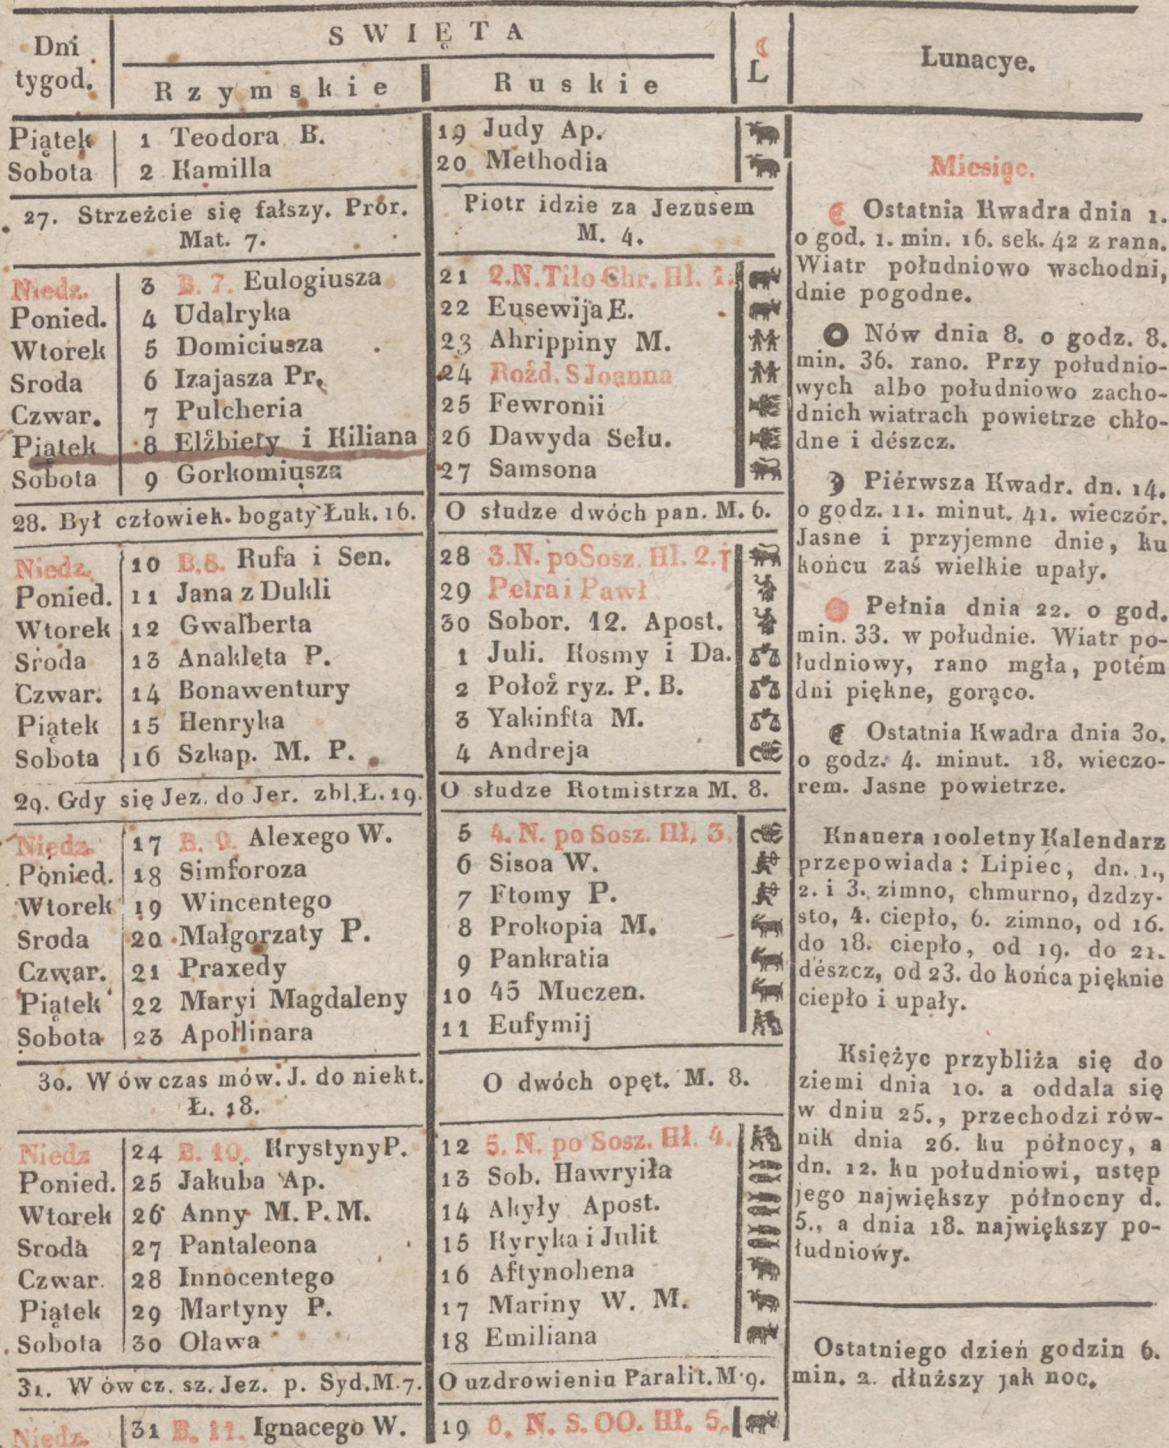 Dni tygod. S W I Ę T A L Lunacye.
R z y m s k i e R u s k i e
Piątek 1 Teodora B. 19 Judy Ap.
Sobota 2 Kamilla 20 Methodia
27. Strzeżcie się fałszy. Pror. Mat. 7. Piotr idzie za Jezusem M. 4.
Niedz. 3 B. 7. Eulogiusza 21 2.N.Tiło Chr. Hł. 1.
Ponied. 4 Udalryka 22 Eusewija E.
Wtorek 5 Domiciusza 23 Ahrippiny M.
Sroda 6 Izajasza Pr. 24 Rożd. S Joanna
Czwar. 7 Pulcheria 25 Fewronii
Piątek 8 Elżbiety i Kiliana 26 Dawyda Sełu.
Sobota 9 Gorkomiusza 27 Samsona
28. Był człowiek. bogaty Łuk. 16. O słudze dwóch pan. M. 6.
Niedz. 10 B.8. Rufa i Sen. 28 3.N. po Sosz. Hł. 2.†
Ponied. 11 Jana z Dukli 29 Petra i Pawł
Wtorek 12 Gwalberta 30 Sobor. 12. Apost.
Sroda 13 Anakleta P. 1 Juli. Kosmy i Da.
Czwar. 14 Bonawentury 2 Położ ryz. P. B.
Piątek 15 Henryka 3 Yakinfta M.
Sobota 16 Szkap. M. P. 4 Andreja
29. Gdy się Jez. do Jer. zbl.Ł. 19. O słudze Rotmistrza M. 8.
Niedz. 17 B. 9. Alexego W. 5 4. N. po Sosz. Hł. 3.
Ponied. 18 Simforoza 6 Sisoa W.
Wtorek 19 Wincentego 7 Ftomy P.
Sroda 20 Małgorzaty P. 8 Prokopia M.
Czwar. 21 Praxedy 9 Pankratia
Piątek 22 Maryi Magdaleny 10 45 Muczen.
Sobota 23 Apollinara 11 Eufymij
30. W ów czas mów. J. do niekt. Ł. 18. O dwóch opęt. M. 8.
Niedz 24 B. 10. Krystyny P. 12 5. N. po Sosz. Hł. 4.
Ponied. 25 Jakuba Ap. 13 Sob. Hawryiła
Wtorek 26 Anny M. P. M. 14 Akyły Apost.
Sroda 27 Pantaleona 15 Kyryka i Julit
Czwar. 28 Innocentego 16 Aftynohena
Piątek 29 Martyny P. 17 Mariny W. M.
Sobota 30 Oława 18 Emiliana
31. W ów cz. sz. Jez. p. Syd.M.7. O uzdrowieniu Paralit. M. 9.
Niedz. 31 B. 11. Ignacego W. 19 6. N. S. OO. Hł. 5.
Miesiąc.
Ostatnia Kwadra dnia 1.
o god. 1. min. 16. sek. 42 z rana.
Wiatr południowo wschodni,
dnie pogodne.
Nów dnia 8. o godz. 8.
min. 36. rano. Przy południo-
wych albo południowo zacho-
dnich wiatrach powietrze chło-
dne i dészcz.
Piérwsza Kwadr. dn. 14.
o godz. 11. minut. 41. wieczór.
Jasne i przyjemne dnie, ku
końcu zaś wielkie upały.
Pełnia dnia 22. o god.
min. 33. w południe. Wiatr po-
łudniowy, rano mgła, potém
dni piękne, gorąco.
Ostatnia Kwadra dnia 30.
o godz. 4. minut. 18. wieczo-
rem. Jasne powietrze.
Knauera 100letny Kalendarz
przepowiada: Lipiec, dn. 1.,
2. i 3. zimno, chmurno, dzdzy-
sto, 4. ciepło, 6. zimno, od 16.
do 18. ciepło, od 19. do 21.
dészcz, od 23. do końca pięknie
ciepło i upały.
Księżyc przybliża się do
ziemi dnia 10. a oddala się
w dniu 25., przechodzi rów-
nik dnia 26. ku północy, a
dn. 12. ku południowi, ustęp
jego największy północny d.
5., a dnia 18. największy po-
łudniowy.
Ostatniego dzień godzin 6.
min. 2. dłuższy jak noc.